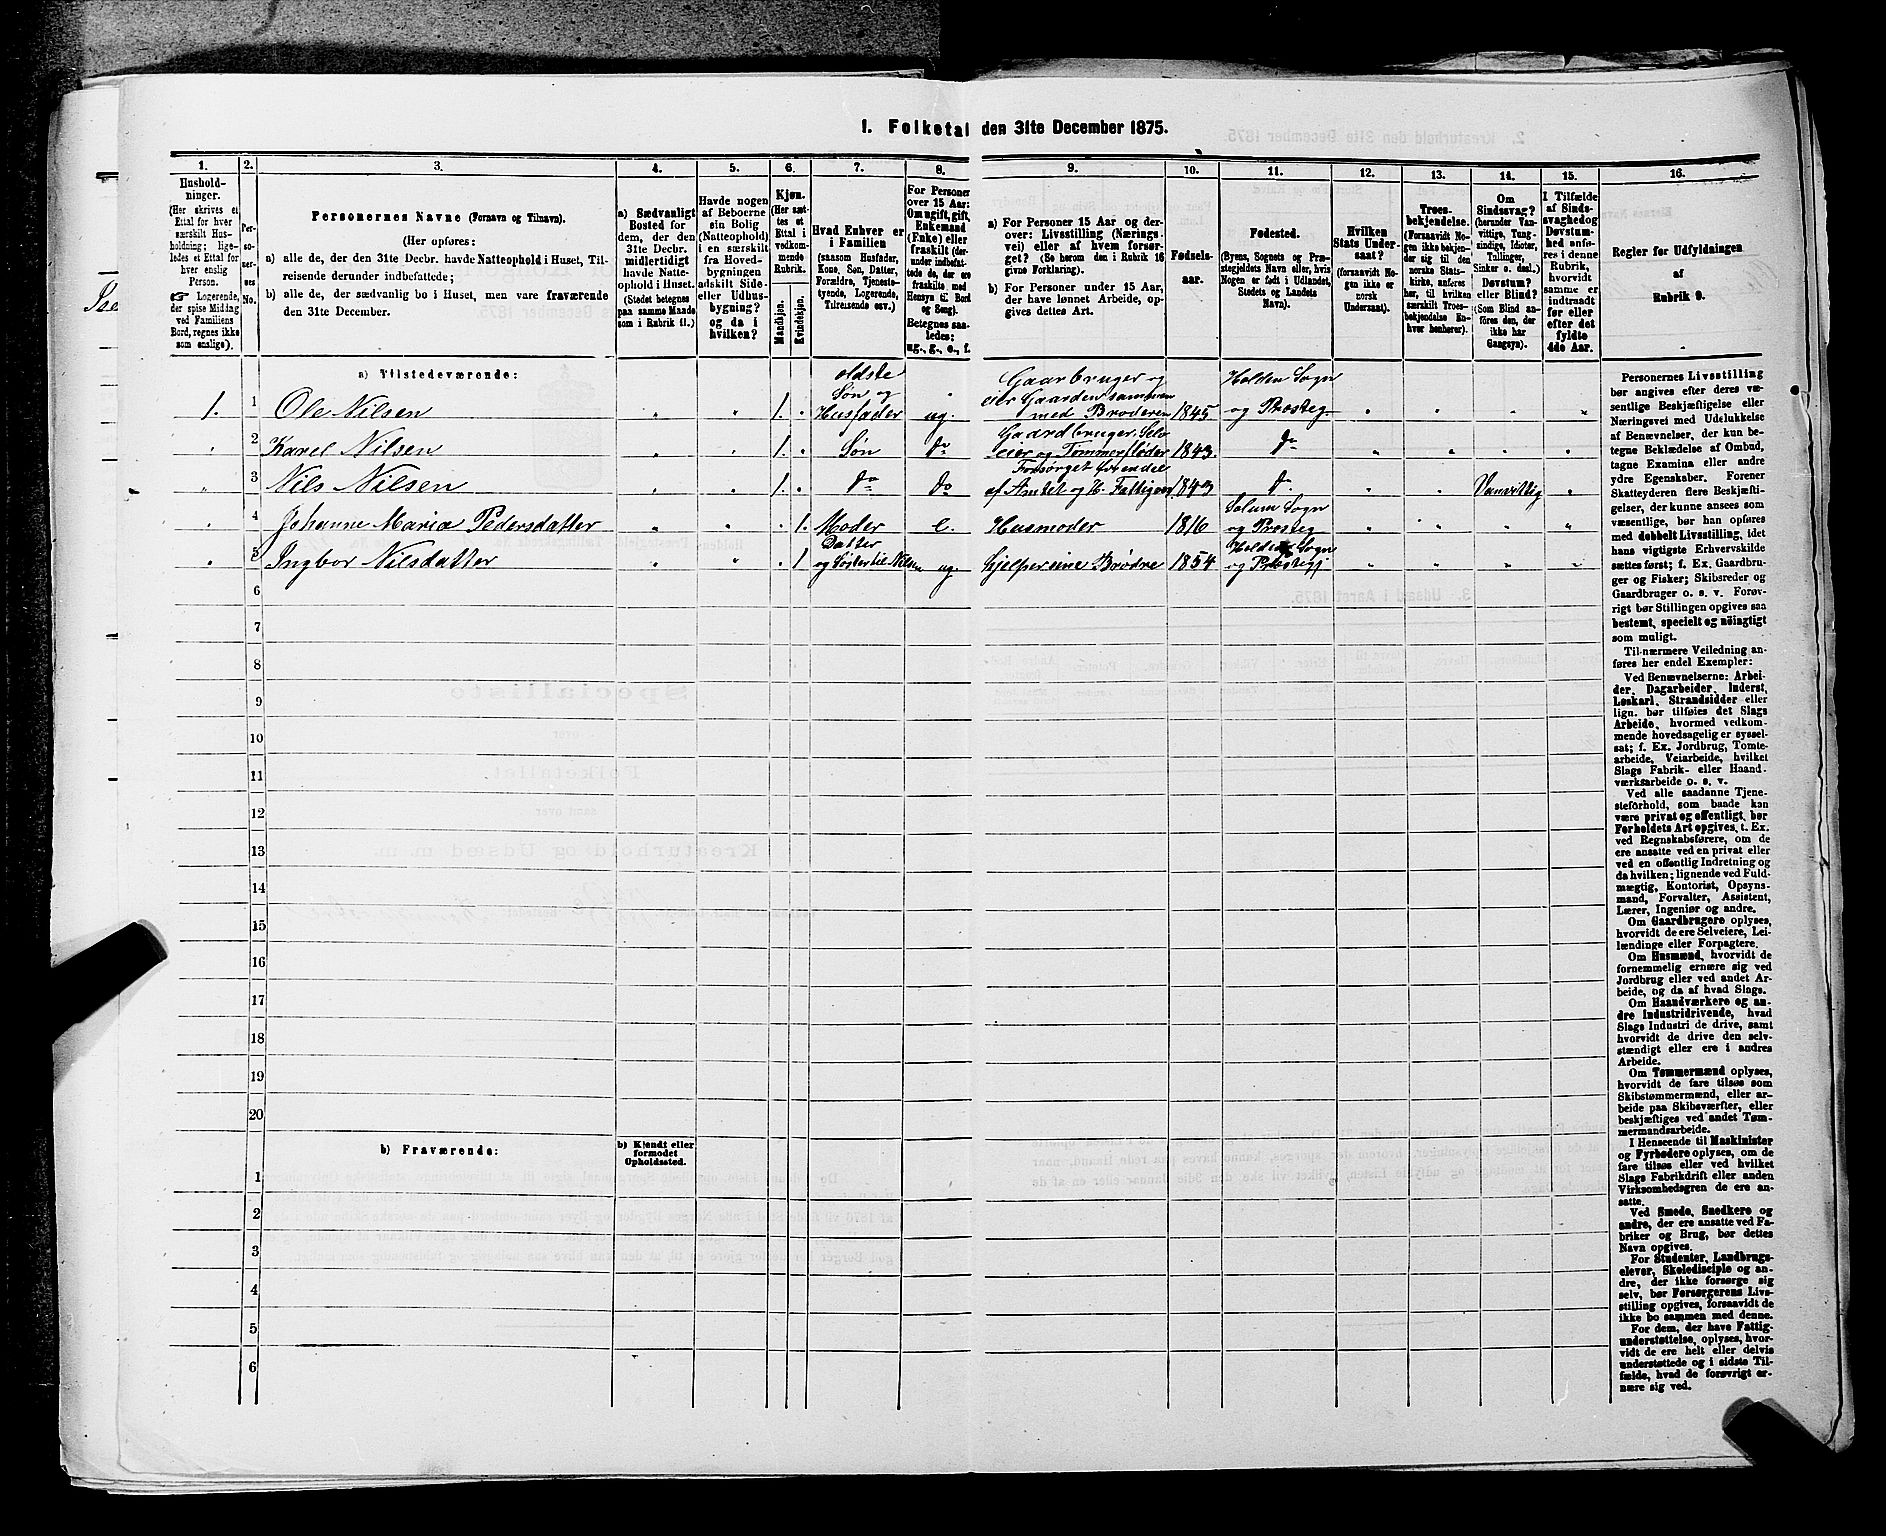 1. Folketal den 31te December 1875.
1. 2. 3. 4. 5. 6. 7. 8. 9. 10. 11. 12. 13. 14. 15. 16.
Hushold-
ninger.
(Her skrives et
Ettal for hver
særskilt Hus-
holdning; lige-
ledes et Ettal for
hver enslig
Person.
☞ Logerende,
der spise Middag
ved Familiens
Bord, regnes ikke
som enslige).
Per-
so-
ner-
nes
No.
Personernes Navne (Fornavn og Tilnavn).
(Her opføres:
a) alle de, der den 31te Decbr. havde Natteophold i Huset, Til-
reisende derunder indbefattede;
b) alle de, der sædvanlig bo i Huset, men vare fraværende
den 31te December.
a) Sædvanligt
Bosted for
dem, der den
31te Decbr.
midlertidigt
havde Natte-
ophold i Huset.
(Stedet betegnes
paa samme Maade
som i Rubrik 11.)
Havde nogen
af Beboerne
sin Bolig
(Natteophold)
i en særskilt
fra Hoved-
bygningen
adskilt Side-
eller Udhus-
bygning?
og da i
hvilken?
Kjøn.
(Her sæt-
tes et
Ettal i
vedkom-
mende
Rubrik.
Mandkjøn.
Kvindekjøn.
Hvad Enhver er
i Familien
(saasom Husfader,
Kone, Søn, Datter,
Forældre, Tjeneste-
tyende, Logerende,
Tilreisende osv.)
For Personer
over 15 Aar:
Om ugift, gift,
Enkemand
(Enke) eller
fraskilt (her-
under indbefat-
tede de, der ere
fraskilte med
Hensyn til Bord
og Seng).
Betegnes saa-
ledes:
ug., g., e., f.
a) For Personer 15 Aar og der-
over: Livsstilling (Nærings-
vei) eller af hvem forsør-
get? (Se herom den i Rubrik 16
givne Forklaring).
b) For Personer under 15 Aar,
der have lønnet Arbeide, op-
gives dettes Art.
Fødsels-
aar.
Fødested.
(Byens, Sognets og Præ-
stegjeldets Navn eller, hvis
Nogen er født i Udlandet,
Stedets og Landets
Navn).
Hvilken
Stats Under-
saat?
(forsaavidt No-
gen ikke er
norsk
Undersaat).
Troes-
bekjendelse.
(Forsaavidt No-
gen ikke bekjen-
der sig til den
norske Stats-
kirke, anføres
her, til hvilken
særskilt Troes-
bekjendelse En-
hver henhører).
Om
Sindssvag?
(herunder Van-
vittige, Tung-
sindige, Idioter,
Tullinger,
Sinker o. desl.)
Døvstum?
eller Blind?
(Som Blind an-
føres den, der
ikke har
Gangsyn).
I Tilfælde
af Sinds-
svaghed og
Døvstum-
hed anfø-
res i denne
Rubrik,
hvorvidt
samme er
indtraadt
før eller
efter det
fyldte
4de Aar.
Regler for Udfyldningen
af
Rubrik 9.
a) Tilstedeværende:
1. 1 Ole Nilsen 1. oldste Søn og Husfader ug. Gaarbruger og eier Gaarden sammen med Broderen 1845 Holden Sogn og Præsteg.
2 Karel Nilsen 1. Søn do Gaardbruger, Selveier og Tømmerfløder 1843. do
3 Nils Nilsen 1. do do Forsørget for en del af Amtet og H. Fattigv. 1843 do. Vanvittig
4 Johanne Maria Pedersdatter 1. Moder e. Husmoder 1816 Solum Sogn og Præsteg
5 Ingbor Nilsdatter 1 Datter og Søster til Nilsen ug. hjelper sine Brødre 1854 Holden Sogn og Præstegj
6
7
8
9
10
11
12
13
14
15
16
17
18
19
20
b) Fraværende:
b) Kjendt eller
formodet
Opholdssted.
1
2
3
4
5
6
Personernes Livsstilling
bør angives efter deres væ-
sentlige Beskjæftigelse eller
Næringsvei med Udelukkelse
af Benævnelser, der kun be-
tegne Beklædelse af Ombud,
tagne Examina eller andre
ydre Egenskaber. Forener
Skatteyderen flere Beskjæfti-
gelser, der kunne ansees som
væsentlige, bør han opføres
med dobbelt Livsstilling, idet
hans vigtigste Erhvervskilde
sættes først; f. Ex. Gaardbru-
ger og Fisker; Skibsreder og
Gaardbruger o. s. v. Forøv-
rigt bør Stillingen opgives saa
bestemt, specielt og nøiagtigt
som muligt.
Til nærmere Veiledning an-
føres her endel Exempler:
Ved Benævnelserne: Arbei-
der, Dagarbeider, Inderst,
Løskarl, Strandsidder eller
lign. bør tilføies det Slags
Arbeide, hvormed vedkom-
mende hovedsagelig er syssel-
sat; f. Ex. Jordbrug, Tomte-
arbeide, Veiarbeide, hvilket
Slags Fabrik- eller Haand-
værksarbeide o. s. v.
Ved alle saadanne Tjene-
steforhold, som baade kan
være privat og offentligt, bør
Forholdets Art opgives, t. Ex.
ved Regnskabsførere, om de
ere ansatte ved en privat eller
ved en offentlig Indretning og
da hvilken; lignende ved Fuld-
mægtig, Kontorist, Opsyns-
mand, Forvalter, Assistent,
Lærer, Ingeniør og andre.
Om Gaardbrugere oplyses,
hvorvidt de ere Selveiere, Lei-
lændinge eller Forpagtere.
Om Husmænd, hvorvidt de
fornemmelig ernære sig ved
Jordbrug eller ved andet Ar-
beide, og da af hvad Slags.
Om Haandværkere og an-
dre industridrivende, hvad
Slags Industri de drive, samt
hvorvidt de drive den selv-
stændigt eller ere i andres
Arbeide.
Om Tømmermænd oplyses,
hvorvidt de fare tilsøs som
Skibstømmermænd, eller ar-
beide paa Skibsværfter, eller
beskjæftiges ved andet Tøm-
mermandsarbeide.
I Henseende til Maskinister
og Fyrbødere oplyses, om de
fare tilsøs eller ved hvilket
Slags Fabrikdrift eller anden
Virksomhedsgren de ere an-
satte.
Ved Smede, Snedkere og
andre, der ere ansatte ved Fa-
briker og Brug, bør dettes
Navn opgives.
For Studenter, Landbrugs-
elever, Skoledisciple og an-
dre, der ikke forsørge sig
selv, bør Forsørgerens Livs-
stilling opgives, forsaavidt de
ikke bo sammen med denne.
For dem, der have Fattig-
understøttelse, oplyses, hvor-
vidt de ere helt eller delvis
understøttede og i sidste Til-
fælde, hvad de forøvrigt er-
nære sig ved.